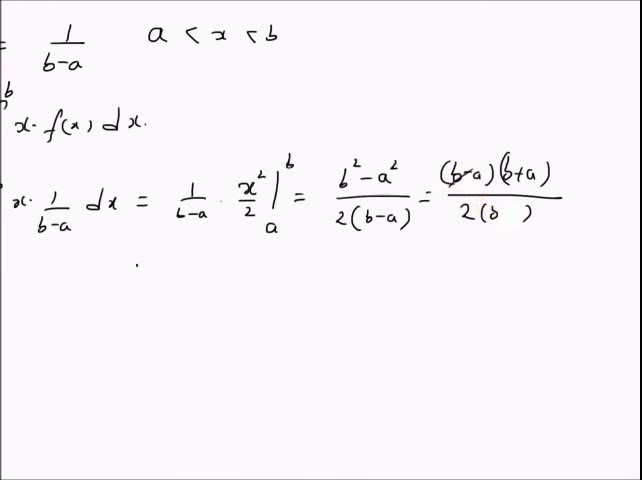 = 1/(b-a)   a < x < b
b
x. f(x) dx.
x. 1/(b-a) dx = 1/(b-a) . x²/2 |ₐᵇ = (b² - a²)/(2(b-a)) = (b-a)(b+a)/(2(b  ))